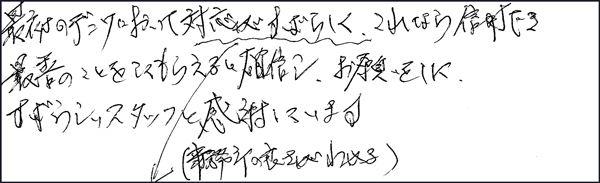 最初のデンワにおいて対応がすばらしく、これなら信用でき
最善のことをしてもらえると確信し、お願いをした。
すばらしいスタッフと感謝しています